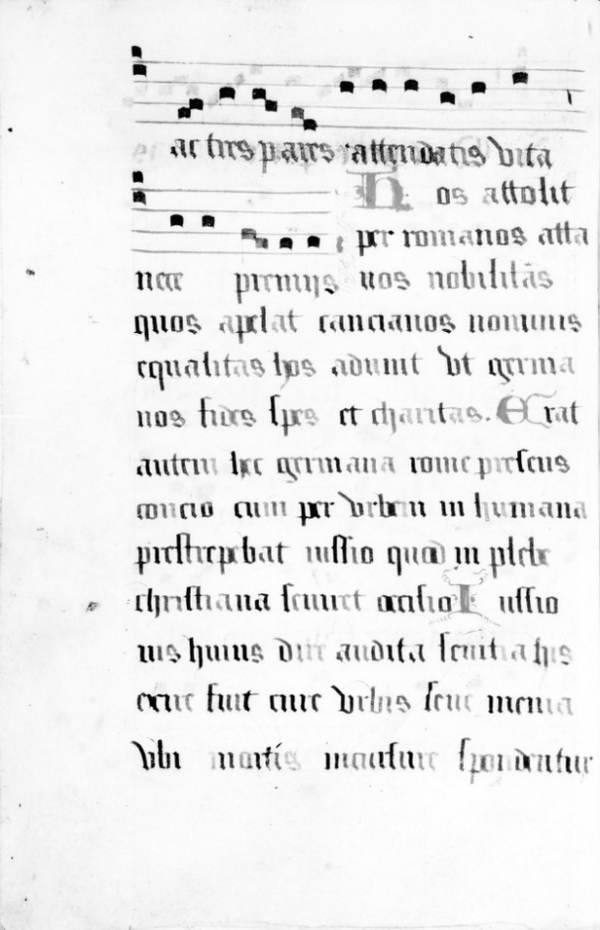 ac tres pares attendatis vita
Hos attolit
per romanos atta
nee premijs uos nobilitās
quos apelat cancianos nominis
equalitas hos adunit vt germa
nos fides spes et charitas. Erat
autem hec germana rome presens
concio cum per vrbem in humana
prestrepebat iussio quod in plebe
christiana seuiret occisio Iussio
nis huius dire audita seuitia his
exire fuit cure vrbis seue menia
vbi mortis incursure spondentur